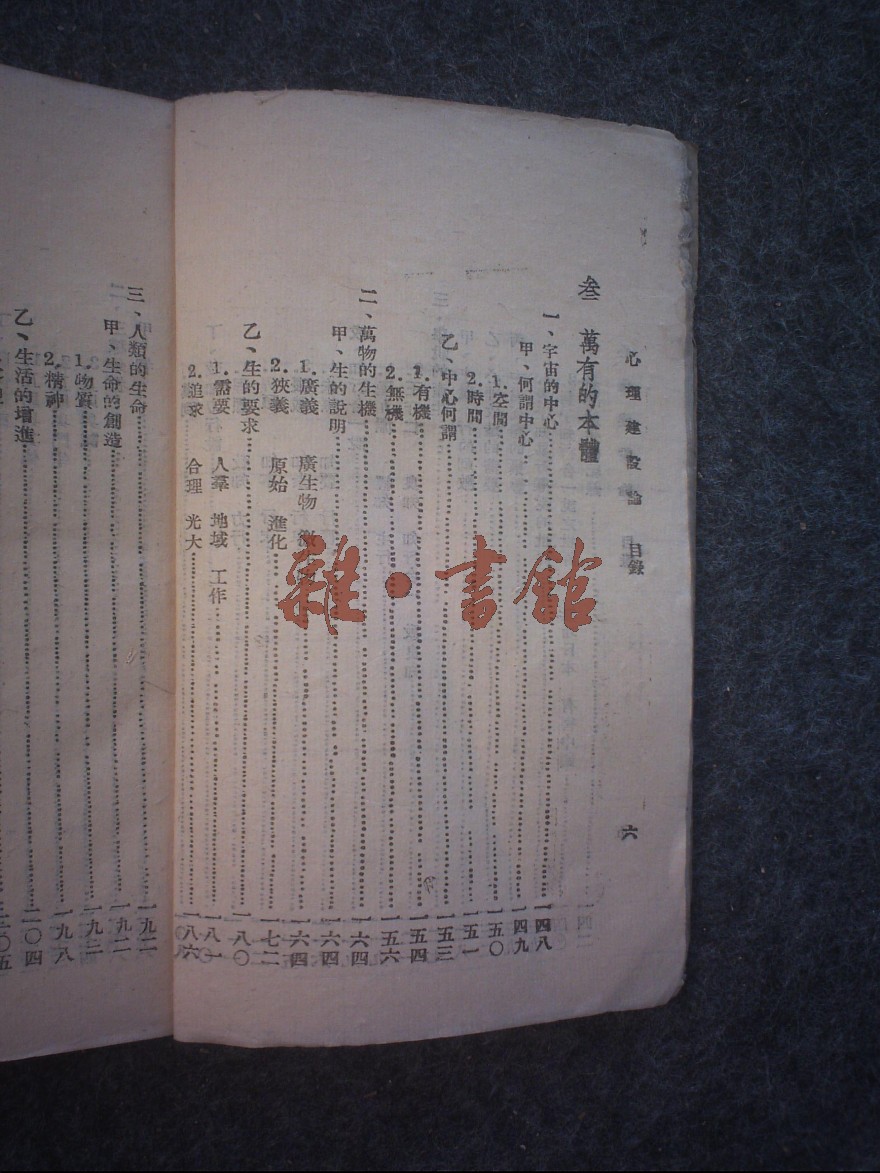 心理建設論 目錄 六
叁 萬有的本體
一、宇宙的中心 一四八
甲、何謂中心 一四九
1.空間 一五〇
2.時間 一五一
乙、中心何謂 一五三
1.有機 一五四
2.無機 一五六
二、萬物的生機 一六四
甲、生的說明 一六四
1.廣義 廣生物 一六四
2.狹義 原始 進化 一七二
乙、生的要求 一八〇
1.需要 人羣 地域 工作 一八一
2.追求 合理 光大 一八六
三、人類的生命 一九二
甲、生命的創造 一九二
1.物質 一九二
2.精神 一九八
乙、生活的增進 二〇四
二〇五
雜·書館